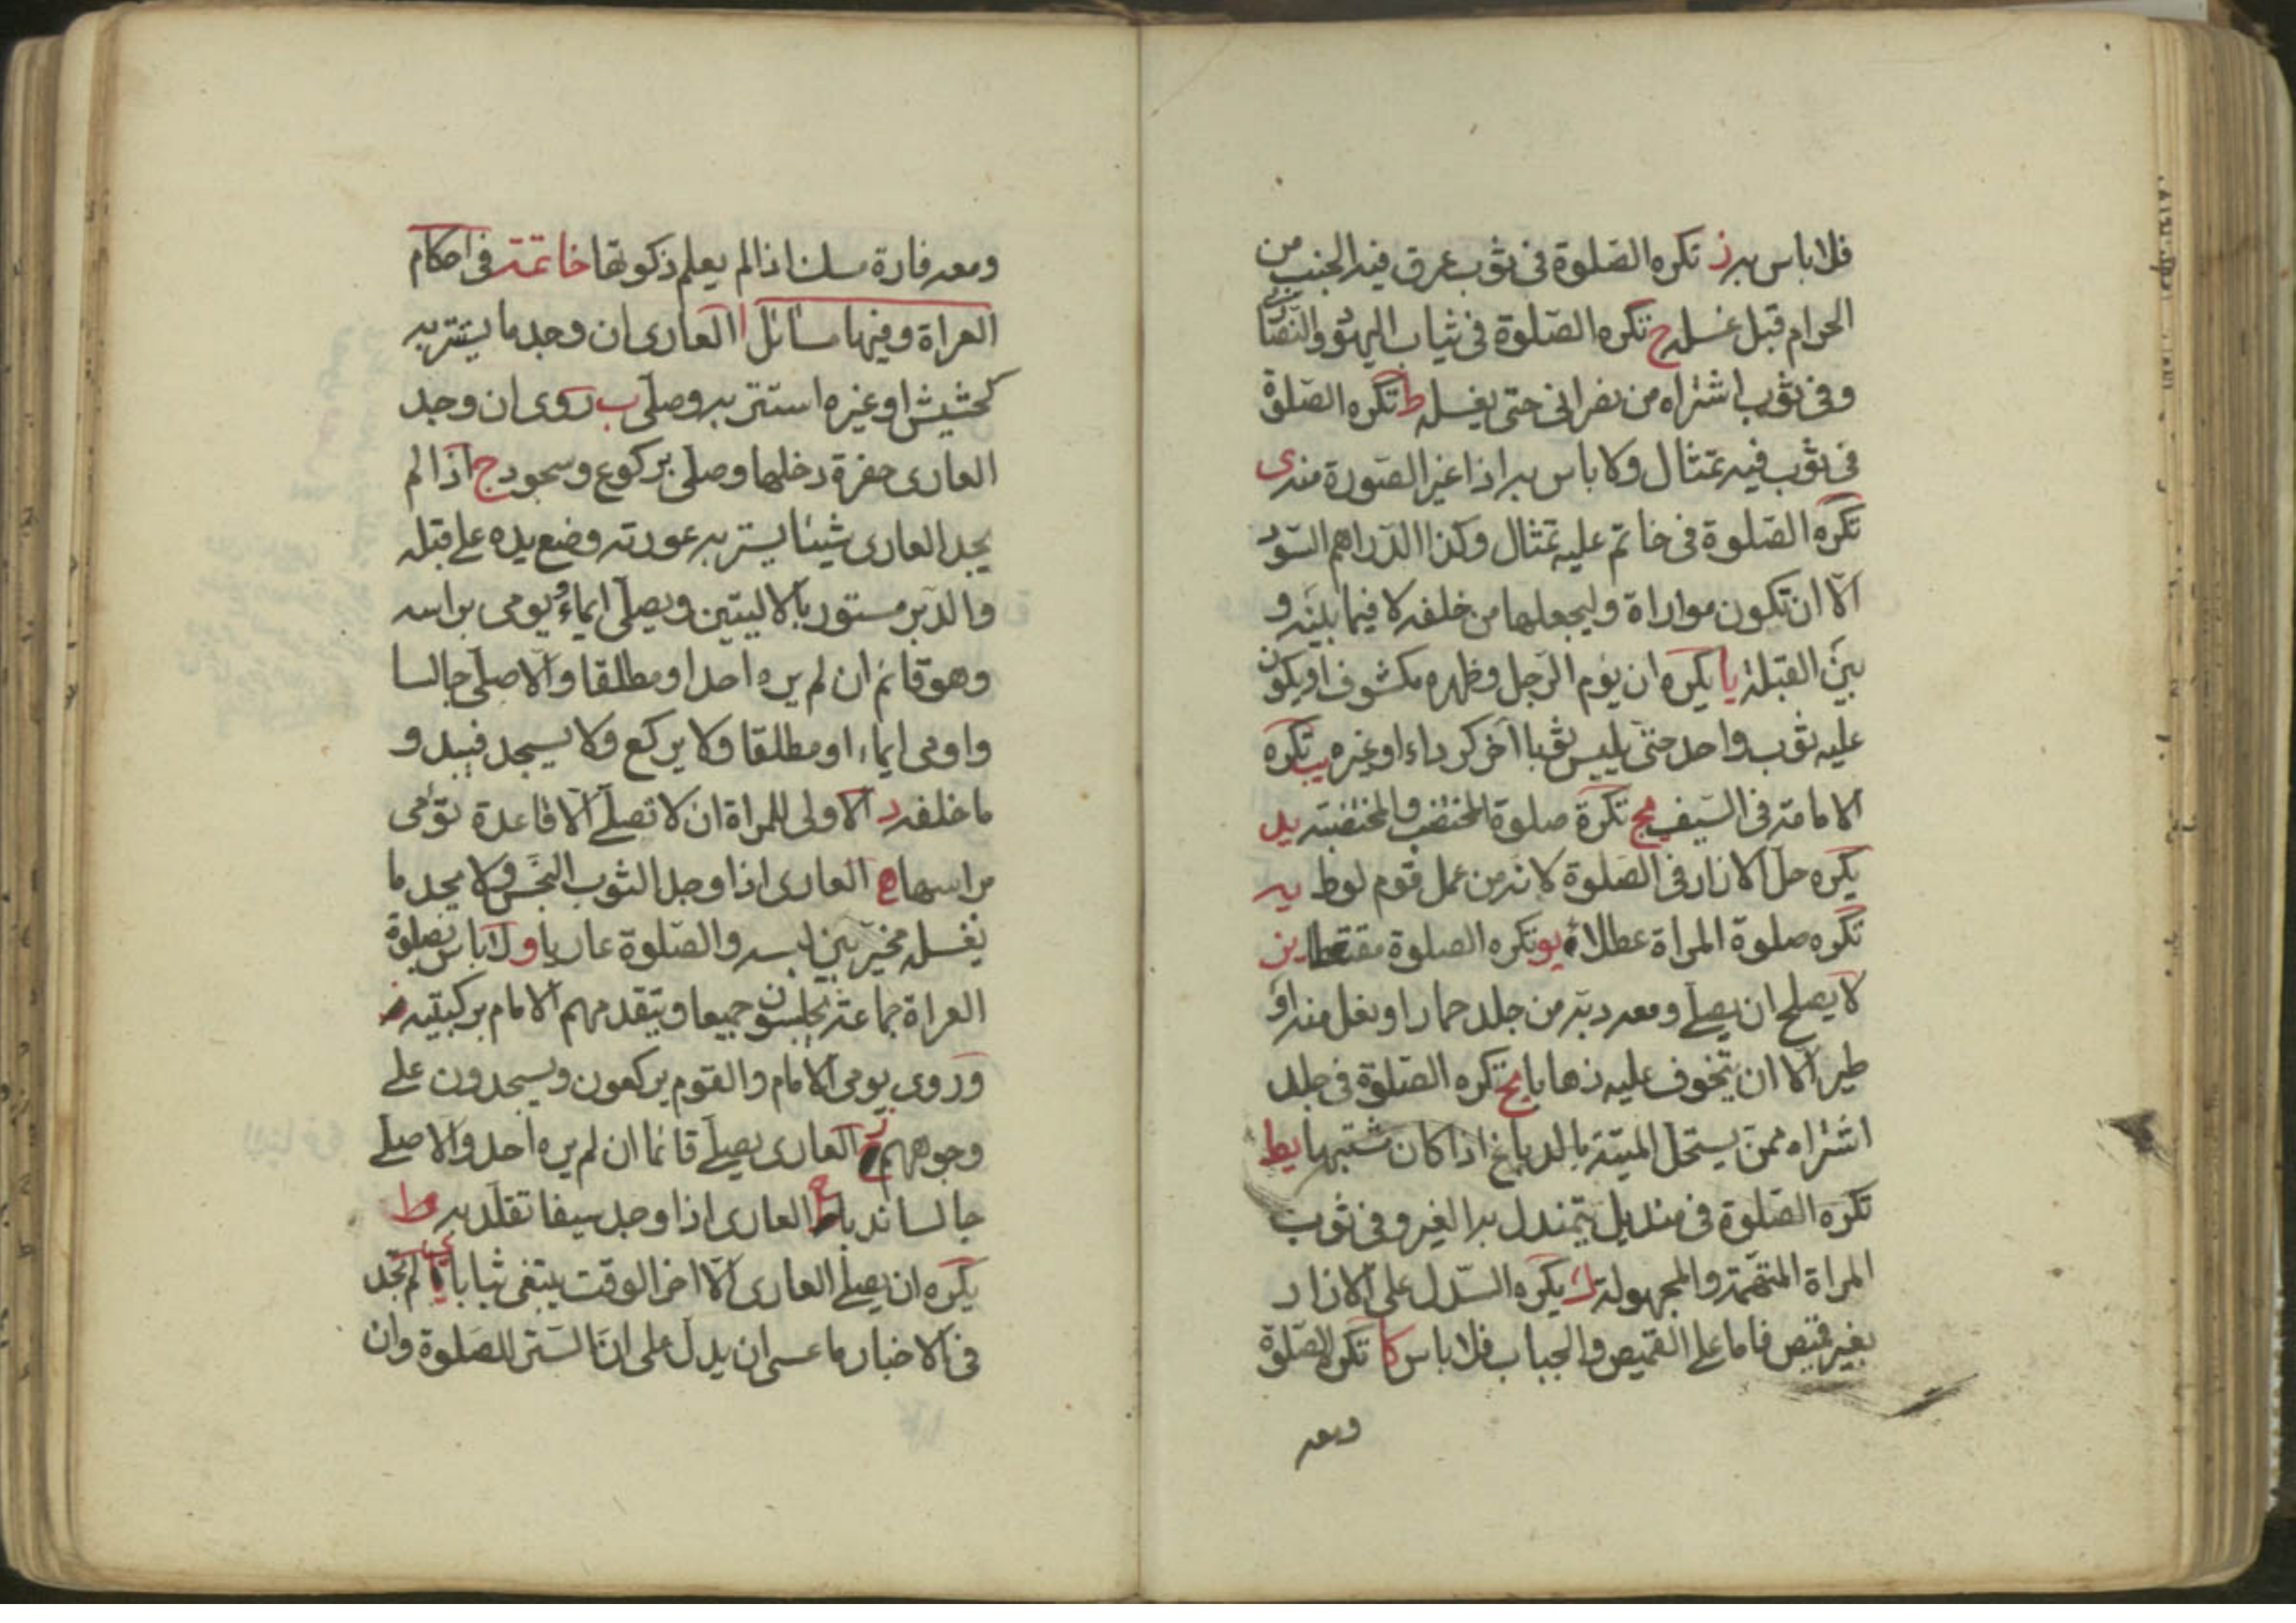 فلا باس به ز تكره الصلوة فى ثوب عرق فيه الجنب من
الحرام قبل غسله ح تكره الصلوة فى ثياب اليهود والنصارى
وفى ثوب اشتراه من نصرانى حتى يغسله ط تكره الصلوة
فى ثوب فيه تمثال ولا باس به اذا غير الصورة منه ى
تكره الصلوة فى خاتم عليه تمثال وكذا الدراهم السود
الا ان تكون مواراة وليجعلها من خلفه لا فيما بينه و
بين القبلة يا يكره ان يؤم الرجل وظهره مكشوف او يكون
عليه ثوب واحد حتى يلبس ثوبا آخر كرداء او غيره يب تكره
الامامة فى السيف يج تكره صلوة المختضب والمختضبة يد
يكره حل الازار فى الصلوة لانه من عمل قوم لوط يه
تكره صلوة المراة عطلاء يو تكره الصلوة مقتعطا يز
لا يصلح ان يصلى ومعه دبة من جلد حمار او بغل منه او
طير الا ان يتخوف عليه ذهابا يح تكره الصلوة فى جلد
اشتراه ممن يستحل الميتة بالدباغ اذا كان مشتبها يط
تكره الصلوة فى منديل يتمندل به الغير وفى ثوب
المراة المتهمة والمجهولة ك يكره السدل على الازار
بغير قميص فاما على القميص والجباب فلا باس كا تكره الصلوة
ومعه
ومعه فارة مسك اذا لم يعلم ذكوتها خاتمة فى احكام
العراة وفيها مسائل ا العارى ان وجد ما يستتر به
كحشيش او غيره استتر به وصلى ب روى ان وجد
العارى حفرة دخلها وصلى بركوع وسجود ج اذا لم
يجد العارى شيئا يستر به عورته وضع يده على قبله
والدبر مستور بالاليتين ويصلى ايماء ويومى براسه
وهو قائم ان لم يره احد او مطلقا والا صلى جالسا
واومى ايماء او مطلقا ولا يركع ولا يسجد فيبدو
ما خلفه د الاولى للمراة ان لا تصلى الا قاعدة تؤمى
براسها ه العارى اذا وجد الثوب النجس ولا يجد ما
يغسله مخير بين لبسه والصلوة عاريا و لا باس بصلوة
العراة جماعة يجلسون جميعا ويتقدمهم الامام بركبتيه
وروى يومى الامام والقوم يركعون ويسجدون على
وجوههم ز العارى يصلى قائما ان لم يره احد والا صلى
جالسا ندبا ح العارى اذا وجد سيفا تقلد به ط
يكره ان يصلى العارى الا اخر الوقت يبتغى ثيابا ى لم تجد
فى الاخبار ما عسى ان يدل على ان الستر للصلوة وان